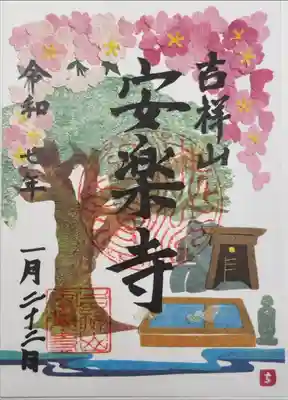 吉祥山
安楽寺
令和七年
一月二十二日